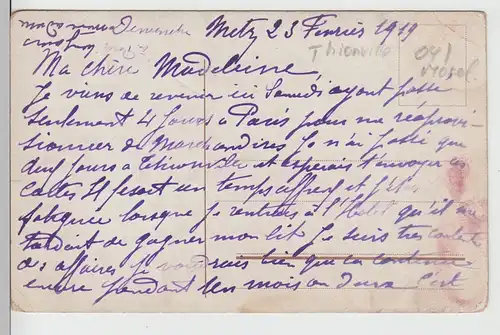 Dimanche Metz 23 Février 1919
Thionville
04/
Mosel.
Ma chère Madeleine,
Je viens de revenir ici Samedi ayant passé
seulement 4 Jours à Paris pour me réaprovi-
sionner de Marchandises Je n'ai passé que
deux Jours à Thionville et espérais t'envoyer
cartes Il fesait un temps affreux et j'étais
fatiguée lorsque Je rentrais à l'Hotel qu'il me
tardait de gagner mon lit Je suis très contente
des affaires, Je voudrais bien que ça continue
encore pendant un mois on dira c'est